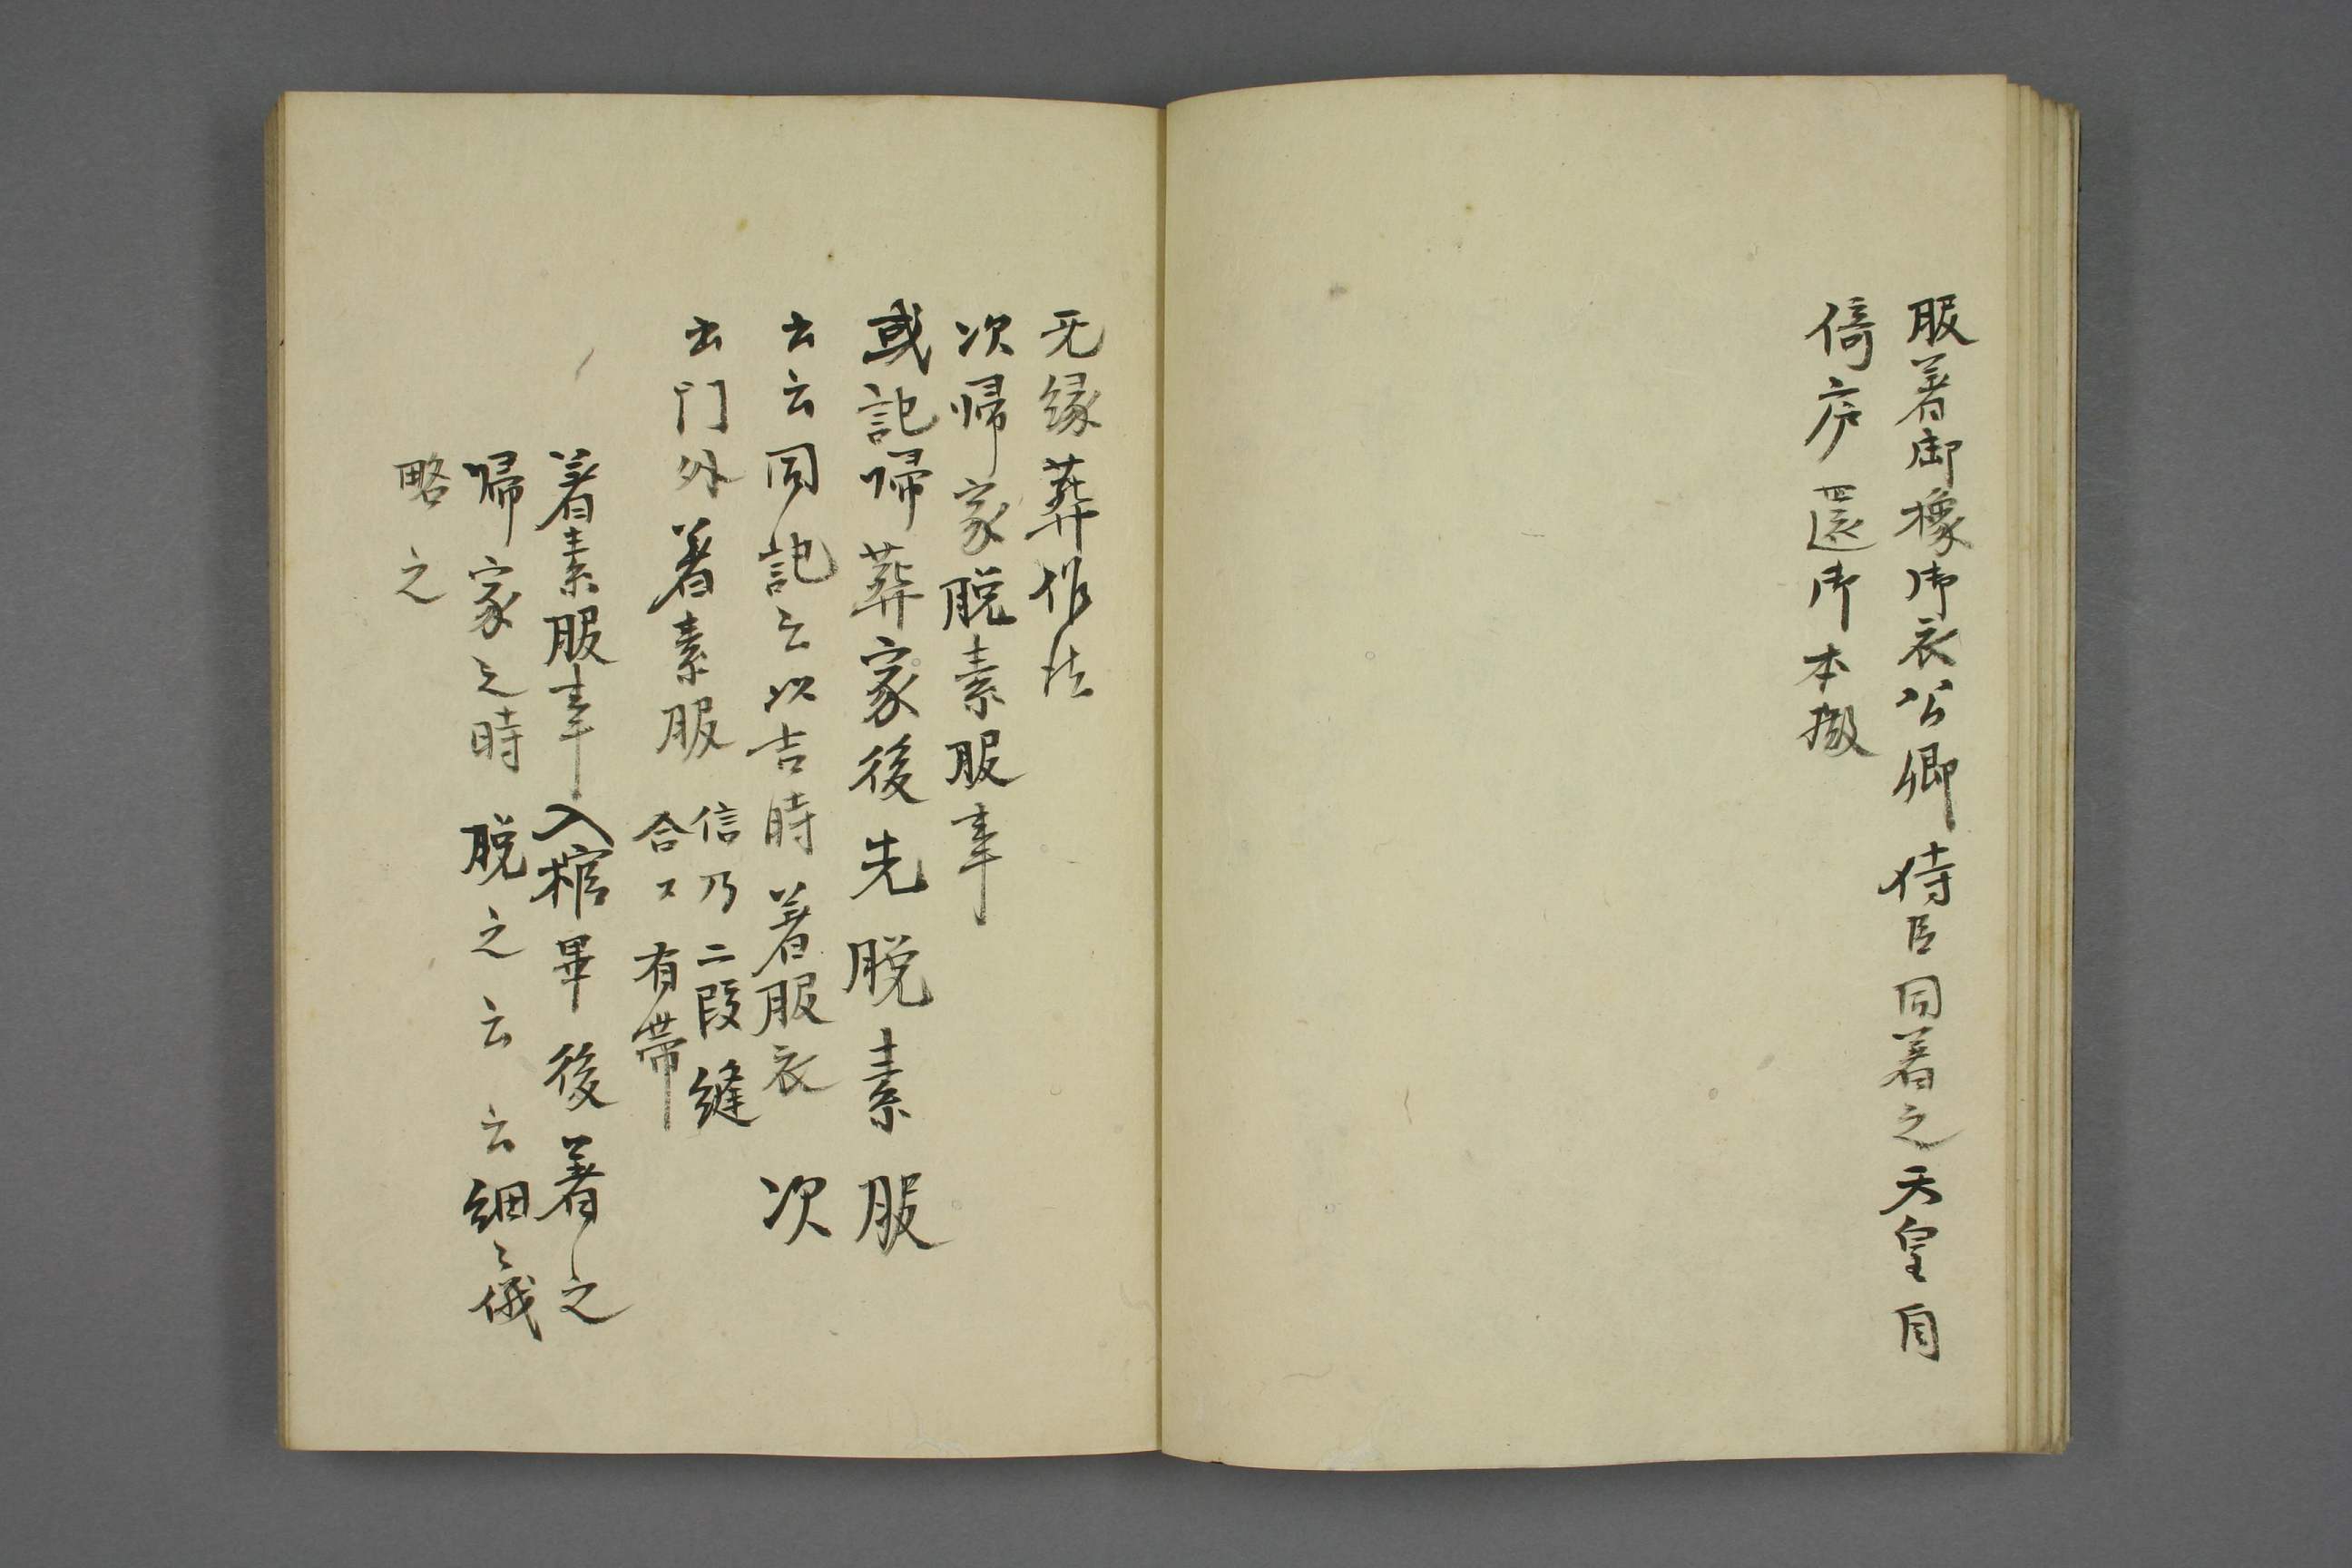 服著御橡御衣公卿侍臣同著之天皇自
倚庐還御本殿
无縁葬作法
次帰家脱素服事
或記帰葬家後先脱素服
去云同記云以吉時著服衣次
出門外著素服
信乃二段縫
合之有帯
著素服事入棺畢後著之
帰家之時脱之云云細々儀
略之